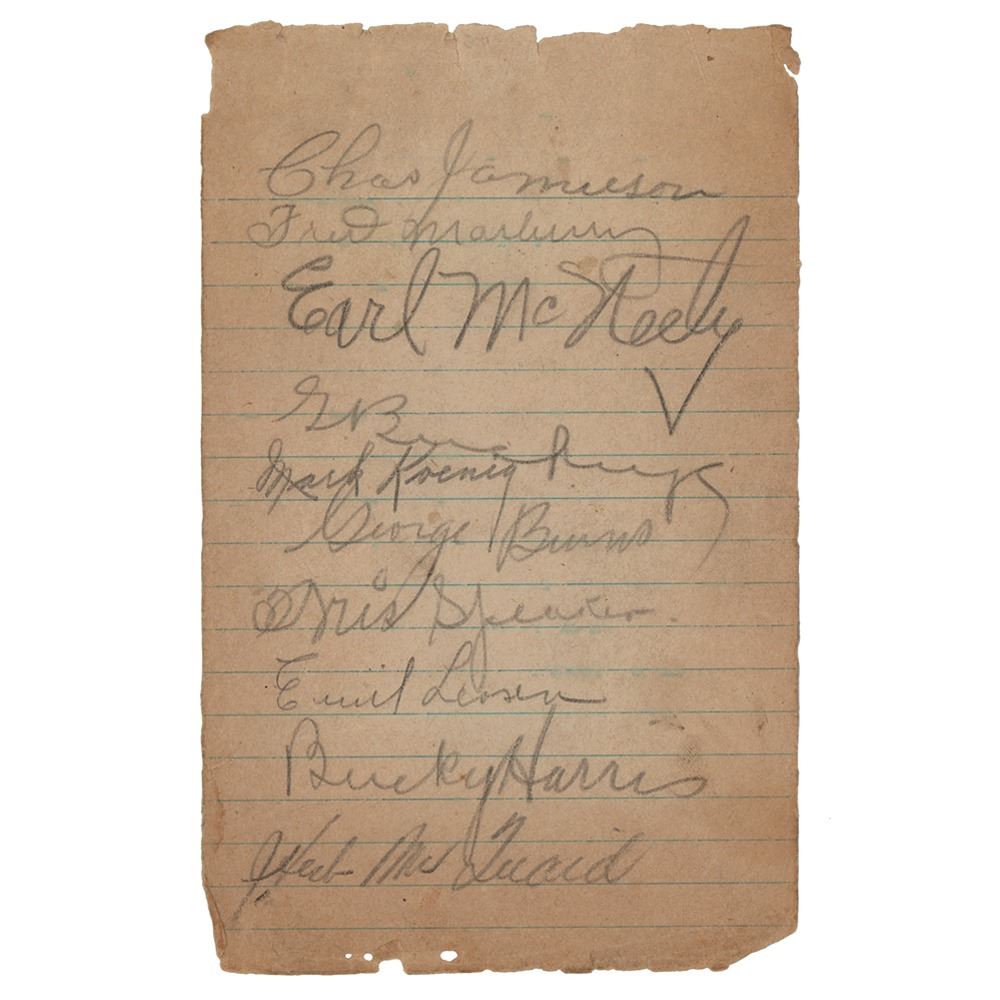 Chas Jamieson
Fred Marberry
Earl McNeely
Mark Koenig
George Burns
Tris Speaker
Emil Levsen
Bucky Harris
Herb Mc Quaid